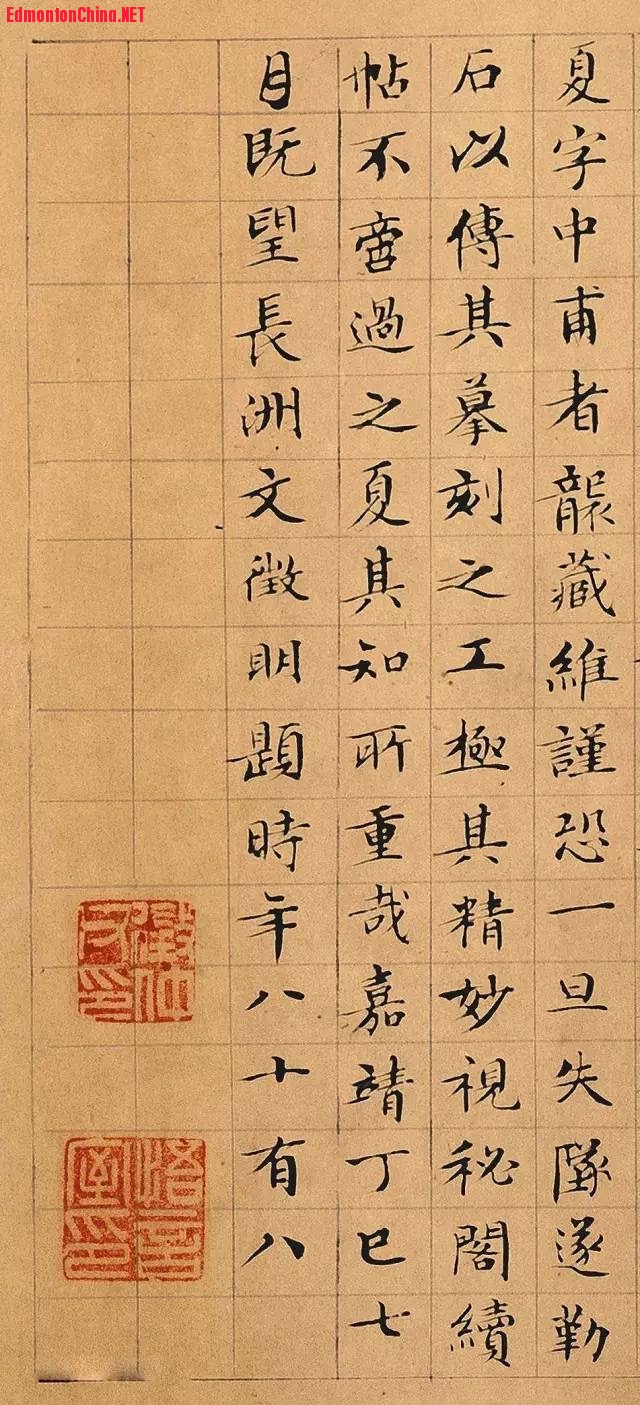 EdmontonChina.NET
夏字中甫者襲藏維謹恐一旦失墜遂勒
石以傳其摹刻之工極其精妙視秘閣續
帖不啻過之夏其知所重哉嘉靖丁巳七
月既望長洲文徵明題時年八十有八
徵仲父印
悟言室印